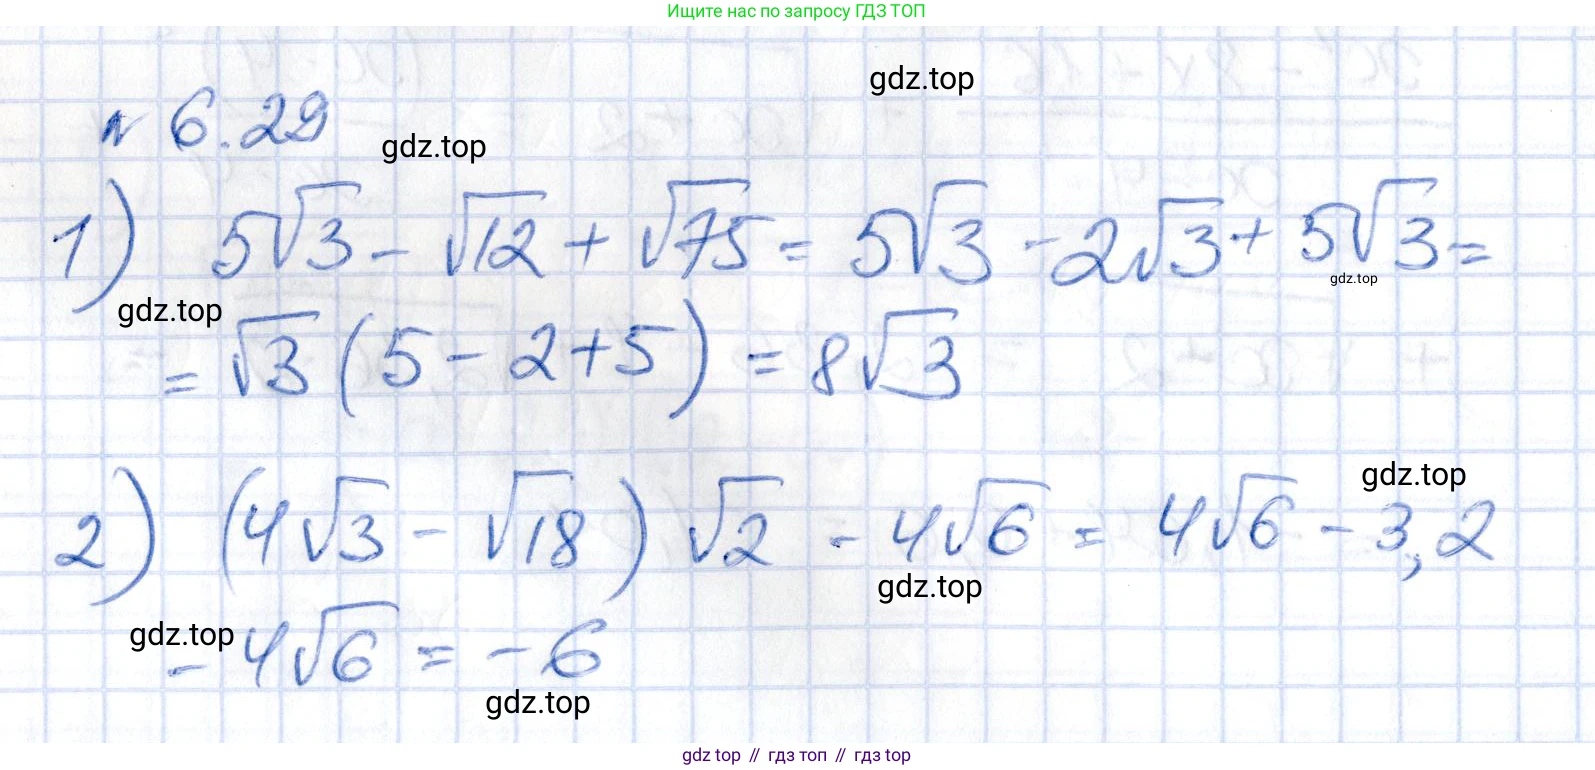 Ищите нас по запросу ГДЗ ТОП
gdz.top
№ 6.29
gdz.top
1) 5√3 - √12 + √75 = 5√3 - 2√3 + 5√3 =
gdz.top
gdz.top
= √3 (5 - 2 + 5) = 8√3
gdz.top
2) (4√3 - √18) √2 - 4√6 = 4√6 - 3,2
gdz.top
gdz.top
- 4√6 = - 6
gdz.top
gdz top // гдз топ // гдз top